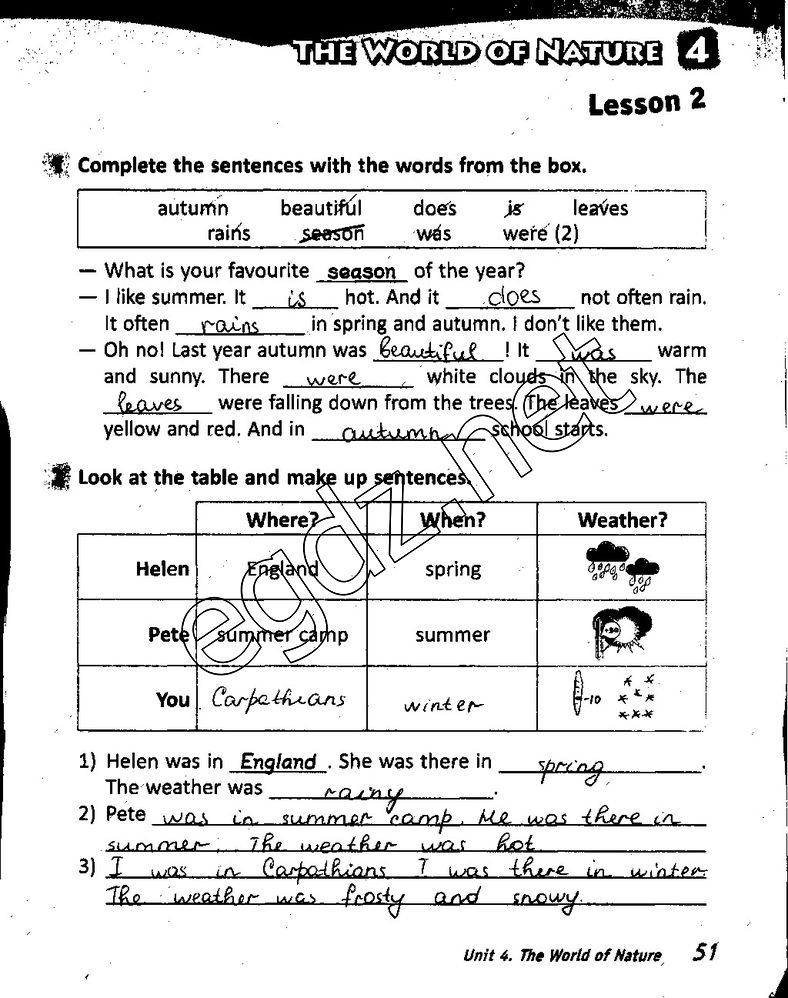 THE WORLD OF NATURE 4
Lesson 2
1 Complete the sentences with the words from the box.
autumn beautiful does is leaves
rains season was were (2)
— What is your favourite season of the year?
— I like summer. It is hot. And it does not often rain.
It often rains in spring and autumn. I don't like them.
— Oh no! Last year autumn was beautiful! It was warm
and sunny. There were white clouds in the sky. The
leaves were falling down from the trees. The leaves were
yellow and red. And in autumn school starts.
2 Look at the table and make up sentences.
Where? When? Weather?
Helen England spring
Pete summer camp summer +30
You Carpathians winter -10
1) Helen was in England. She was there in spring.
The weather was rainy.
2) Pete was in summer camp. He was there in
summer. The weather was hot
3) I was in Carpathians I was there in winter.
The weather was frosty and snowy.
Unit 4. The World of Nature 51
egdz.net